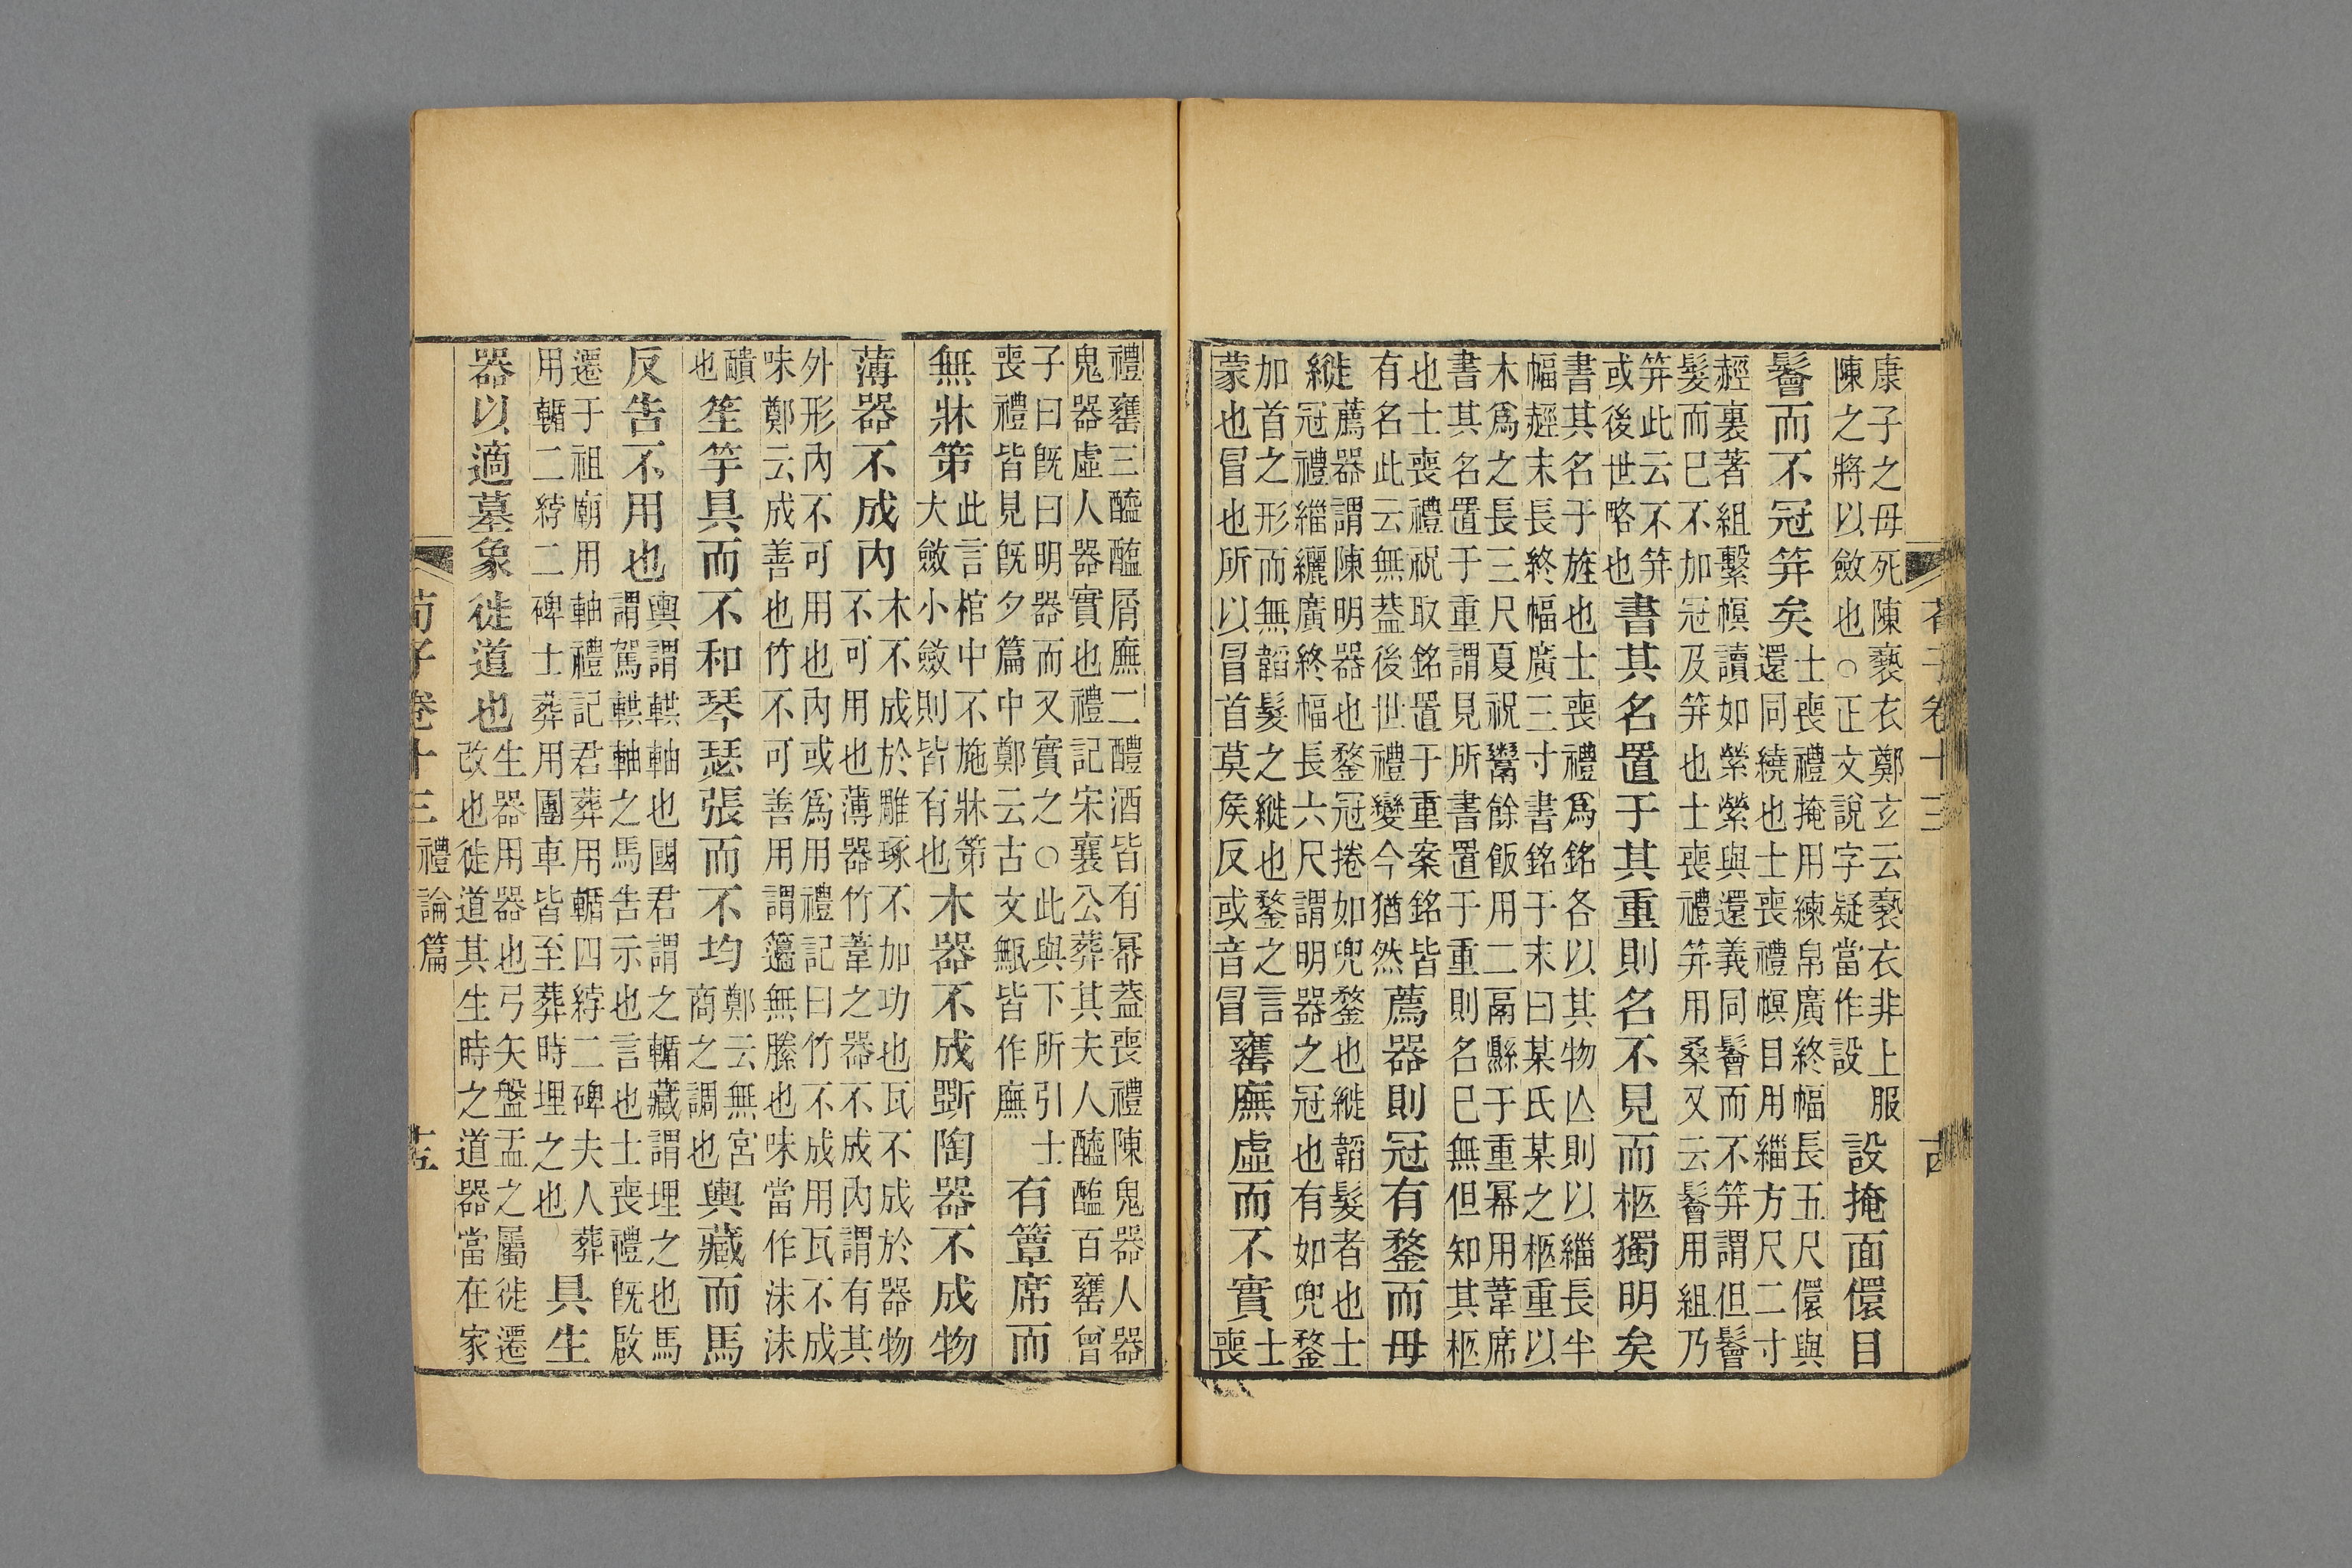 荀子卷十三
康子之母死陳褻衣鄭玄云褻衣非上服
陳之將以斂也○正文說字疑當作設
設掩面儇目
鬠而不冠笄矣
士喪禮掩用練帛廣終幅長五尺儇與
還同繞也士喪禮幎目用緇方尺二寸
䞓裏著組繫幎讀如縈縈與還義同鬠而不笄謂但鬠
髮而已不加冠及笄也士喪禮笄用桑又云鬠用組乃
笄此云不笄
或後世略也
書其名置于其重則名不見而柩獨明矣
書其名于旌也士喪禮爲銘各以其物亾則以緇長半
幅䞓末長終幅廣三寸書銘于末曰某氏某之柩重以
木爲之長三尺夏祝鬻餘飯用二鬲縣于重冪用葦席
書其名置于重謂見所書置于重則名已無但知其柩
也士喪禮祝取銘置于重案銘皆
有名此云無蓋後世禮變今猶然
薦器則冠有鍪而毋
縰
薦器謂陳明器也鍪冠捲如兜鍪也縰韜髮者也士
冠禮緇纚廣終幅長六尺謂明器之冠也有如兜鍪
加首之形而無韜髮之縰也鍪之言
蒙也冒也所以冒首莫矦反或音冒
甕廡虛而不實
士
喪
禮甕三醯醢屑廡二醴酒皆有冪蓋喪禮陳鬼器人器
鬼器虛人器實也禮記宋襄公葬其夫人醯醢百甕曾
子曰旣曰明器而又實之○此與下所引士
喪禮皆見旣夕篇中鄭云古文甒皆作廡
有簟席而
無牀笫
此言棺中不施牀笫
大斂小斂則皆有也
木器不成斲陶器不成物
薄器不成內
木不成於雕琢不加功也瓦不成於器物
不可用也薄器竹葦之器不成內謂有其
外形內不可用也內或爲用禮記曰竹不成用瓦不成
味鄭云成善也竹不可善用謂籩無縢也味當作沬沬
靧
也
笙竽具而不和琴瑟張而不均
鄭云無宮
商之調也
輿藏而馬
反告不用也
輿謂輁軸也國君謂之輴藏謂埋之也馬
謂駕輁軸之馬告示也言也士喪禮旣啟
遷于祖廟用軸禮記君葬用輴四綍二碑夫人葬
用輴二綍二碑士葬用團車皆至葬時埋之也
具生
器以適墓象徙道也
生器用器也弓矢盤盂之屬徙遷
改也徙道其生時之道器當在家
荀子卷十三
禮論篇